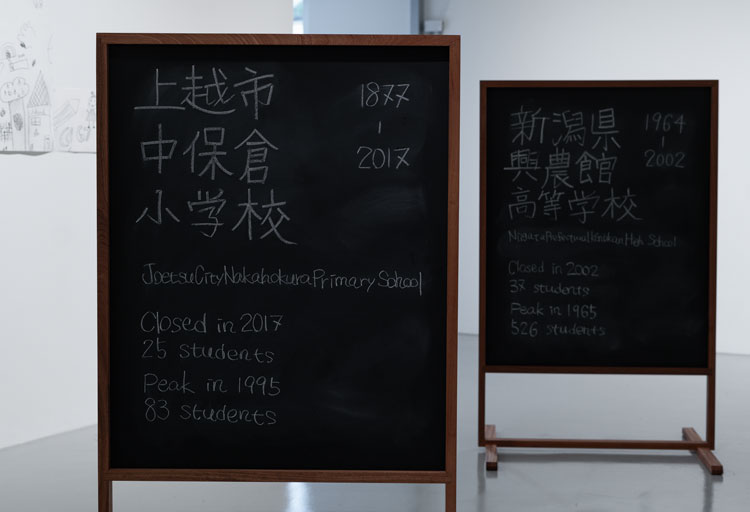 上越市
中保倉
小学校
1877
-
2017
Joetsu City Nakahokura Primary School
Closed in 2017
25 students
Peak in 1995
83 students
新潟県
興農館
高等学校
1964
-
2002
High School
Closed in 2002
37 students
Peak in 1965
526 students